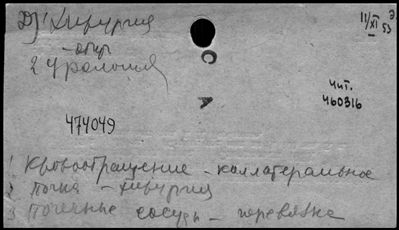 Д) Хирургия
- общ
2 Урология
11/XI 53
Э
С
А
Чит.
460316
474049
1 Кровообращение - коллатеральное
2 Почки - хирургия
3 Почечные сосуды - перевязка